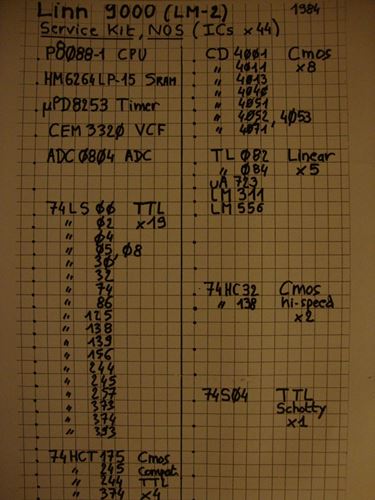 Linn 9000 (LM-2) 1984
Service Kit, NOS (ICs x44)
P8088-1 CPU
HM6264LP-15 SRAM
µPD8253 Timer
CEM 3320 VCF
ADC 0804 ADC
74LS 00 TTL
" 02 x19
" 04
" 05, 08
" 30
" 32
" 74
" 86
" 125
" 138
" 139
" 156
" 244
" 245
" 257
" 373
" 374
" 393
74HCT 175 Cmos
" 245 Compat.
" 244 TTL
" 374 x4
CD 4001 Cmos
" 4011 x8
" 4013
" 4040
" 4051
" 4052, 4053
" 4071
TL 082 Linear
" 084 x5
uA 723
LM 311
LM 556
74HC32 Cmos
" 138 hi-speed
x2
74S04 TTL
Schotty
x1